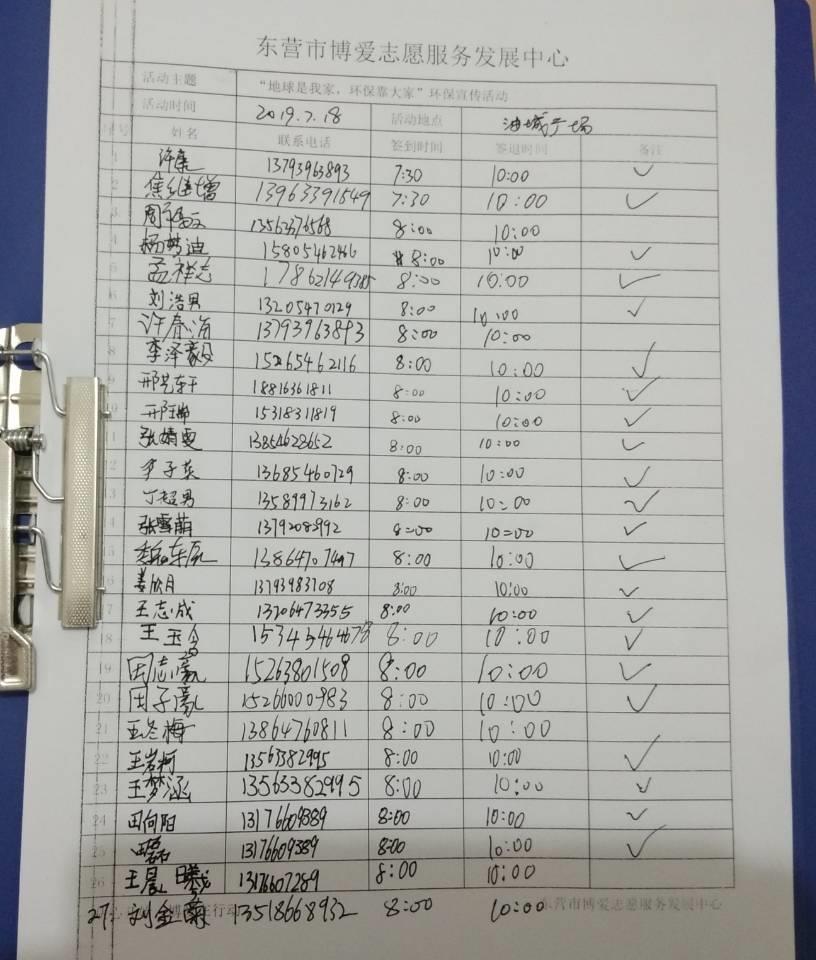 东营市博爱志愿服务发展中心
活动主题 “地球是我家，环保靠大家”环保宣传活动
活动时间 2019.7.18 活动地点 油城广场
序号 姓名 联系电话 签到时间 签退时间 备注
1 许康 13793963893 7:30 10:00 ✓
2 焦继增 13963391849 7:30 10:00 ✓
3 13563376568 8:00 10:00
4 杨梦迪 15805462466 8:00 10:00 ✓
5 孟祥志 17862149385 8:00 10:00 ✓
6 刘浩男 13205470129 8:00 10:00 ✓
7 许春海 13793963893 8:00 10:00
8 李泽毅 15265462116 8:00 10:00 ✓
9 18816361811 8:00 10:00 ✓
10 邢瑞 15318311819 8:00 10:00 ✓
11 张婧雯 13854628652 8:00 10:00 ✓
12 李子英 13685460729 8:00 10:00 ✓
13 丁超男 13589973162 8:00 10:00 ✓
14 张雪萌 13792082992 8:00 10:00 ✓
15 13864707497 8:00 10:00 ✓
16 姜欣月 13793983708 8:00 10:00 ✓
17 王志成 13206473355 8:00 10:00 ✓
18 8:00 10:00 ✓
19 田志豪 15263801508 8:00 10:00 ✓
20 田子豪 15266000983 8:00 10:00 ✓
21 王冬梅 13864760811 8:00 10:00
22 王岩柯 13563382995 8:00 10:00 ✓
23 王梦涵 13563382995 8:00 10:00 ✓
24 田向阳 13176609389 8:00 10:00 ✓
25 田磊 13176609389 8:00 10:00 ✓
26 王晨曦 13176607289 8:00 10:00
27. 刘金菊 13518668932 8:00 10:00
东营市博爱志愿服务发展中心